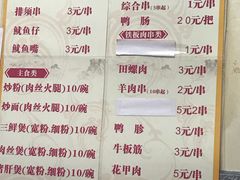 排须串 3元/串
鱿鱼仔 3元/串
鱿鱼嘴 3元/串
主食类
炒粉(肉丝火腿)10/碗
炒面(肉丝火腿)10/碗
三鲜煲(宽粉.细粉)10/碗
肉丝煲(宽粉.细粉)10/碗
猪肝煲(宽粉.细粉)10/碗
综合串(5串起) 1元/串
鸭肠 20元/把
铁板肉串类
田螺肉 3元/串
羊肉串(5串起) 2元/串
5元2串
鸭胗 3元/串
牛板筋 3元/串
花甲肉 5元/串